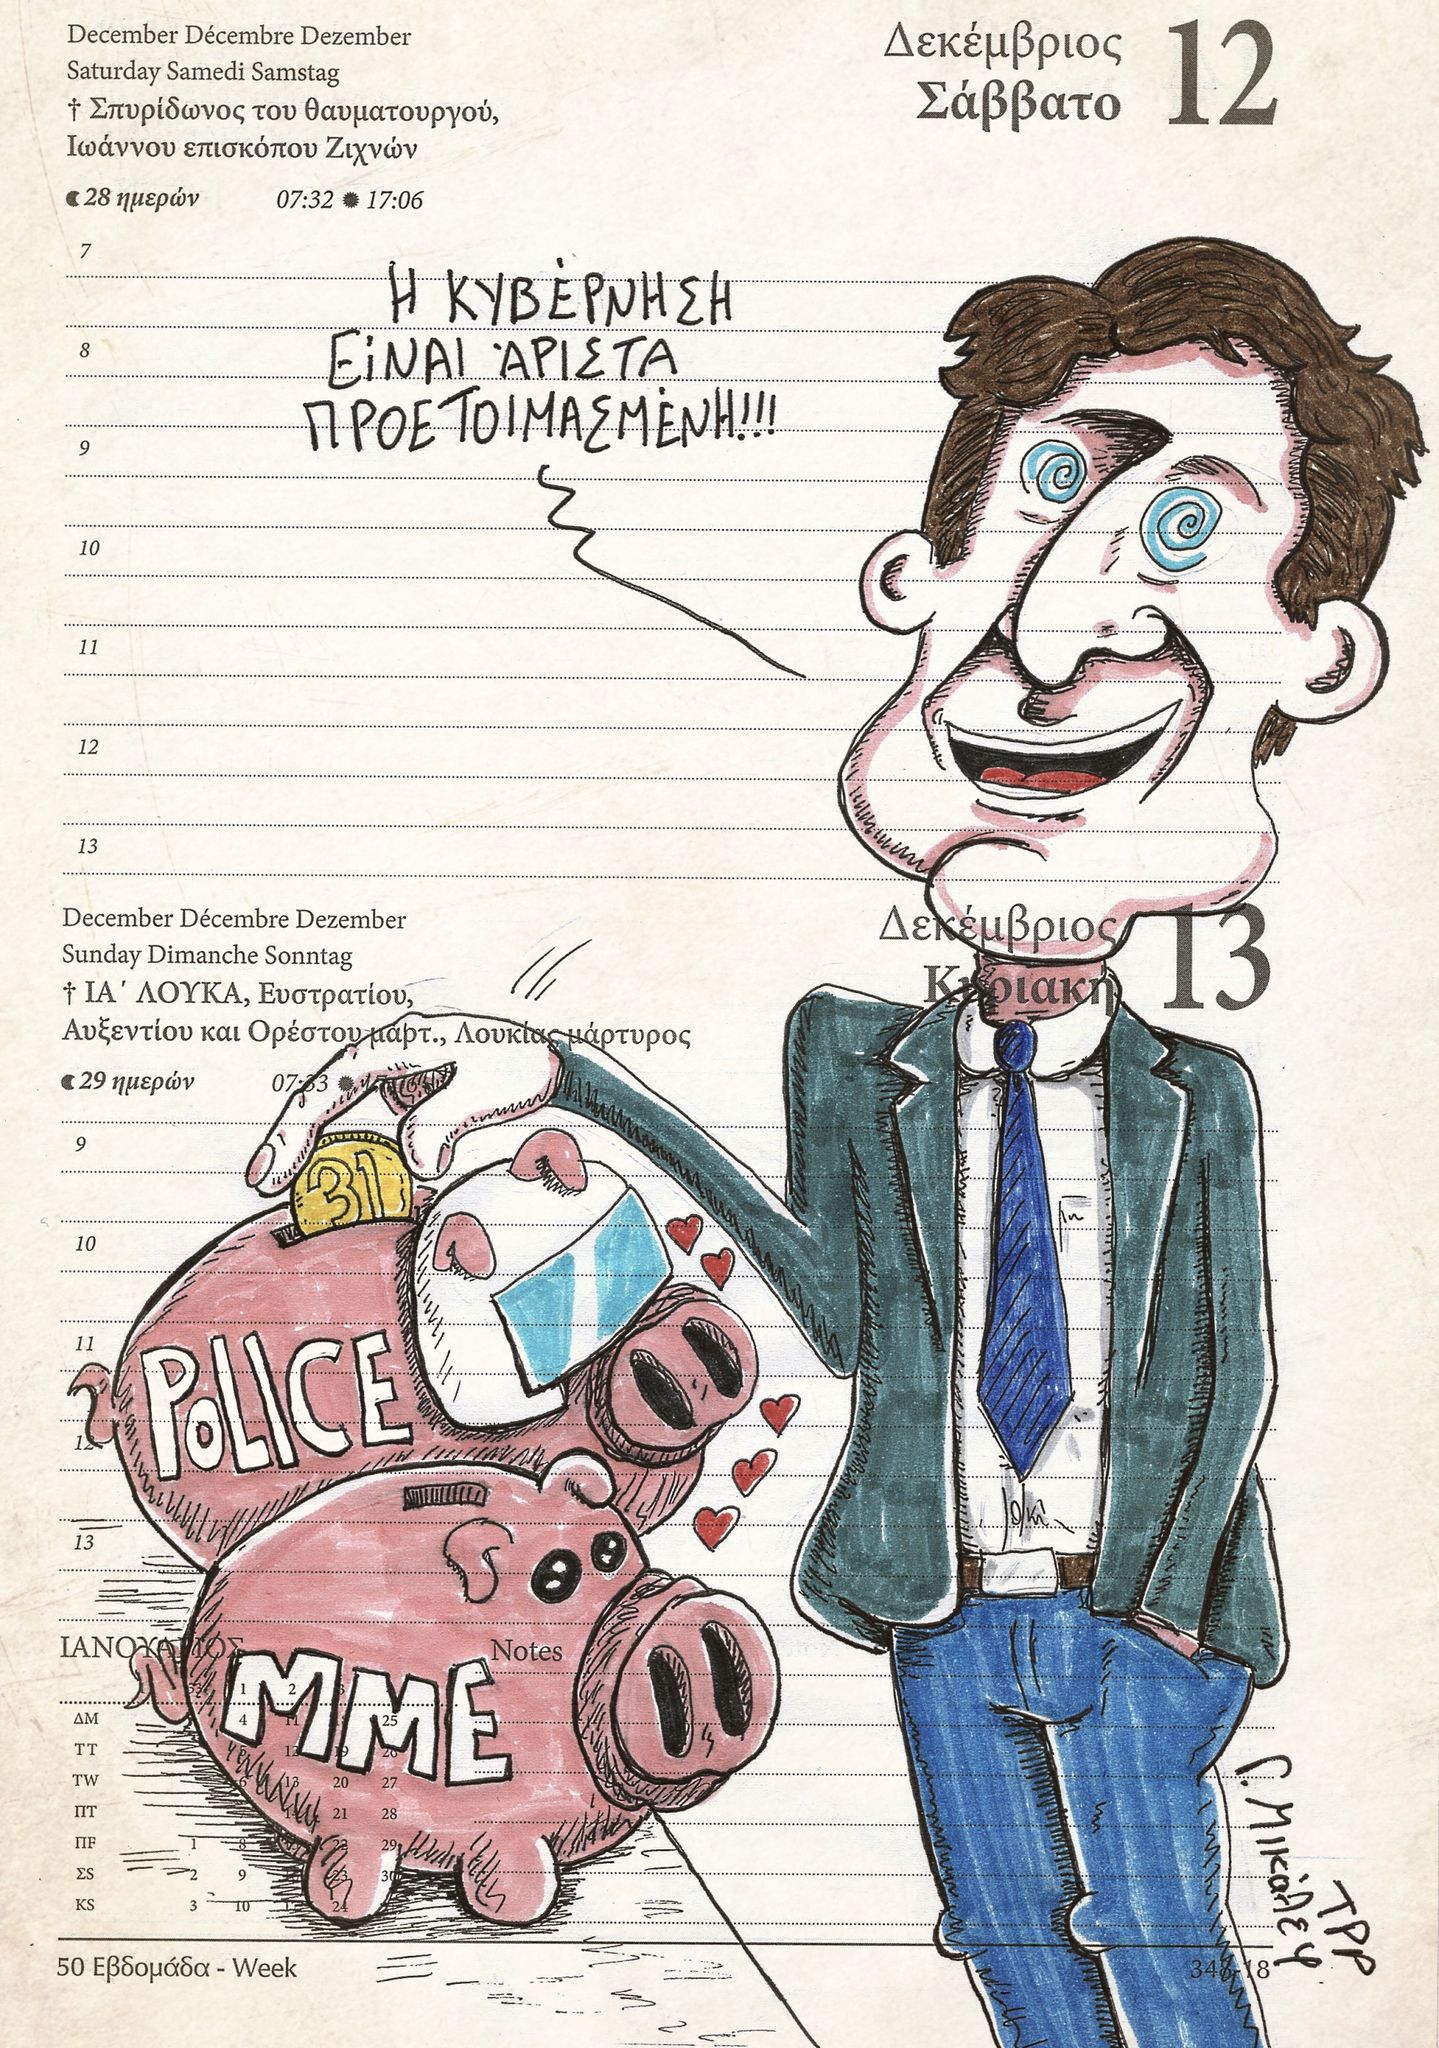 December Décembre Dezember
Saturday Samedi Samstag
† Σπυρίδωνος του θαυματουργού,
Ιωάννου επισκόπου Ζιχνών
28 ημερών 07:32 17:06
Δεκέμβριος
Σάββατο
12
7
Η ΚΥΒΈΡΝΗΣΗ
8
ΕίΝΑΙ ΆΡΙΣΤΑ
ΠΡΟΕΤΟΙΜΑΣΜΈΝΗ!!!
9
10
11
12
13
December Décembre Dezember
Sunday Dimanche Sonntag
† ΙΑ΄ ΛΟΥΚΑ, Ευστρατίου,
Αυξεντίου και Ορέστου μάρτ., Λουκίας μάρτυρος
29 ημερών 07:33
Δεκέμβριος
Κυριακή
13
9
31
10
11
POLICE
12
13
ΙΑΝΟΥΑΡΙΟΣ
Notes
MME
1 2
ΔΜ 4 11 25
ΤΤ 12 19 26
TW 6 13 20 27
ΠΤ 21 28
ΠF 1 8 22 29
ΣS 2 9 23 30
KS 3 10 24
Γ. ΜΙΚάλΕφ
TPP
50 Εβδομάδα - Week
348-18